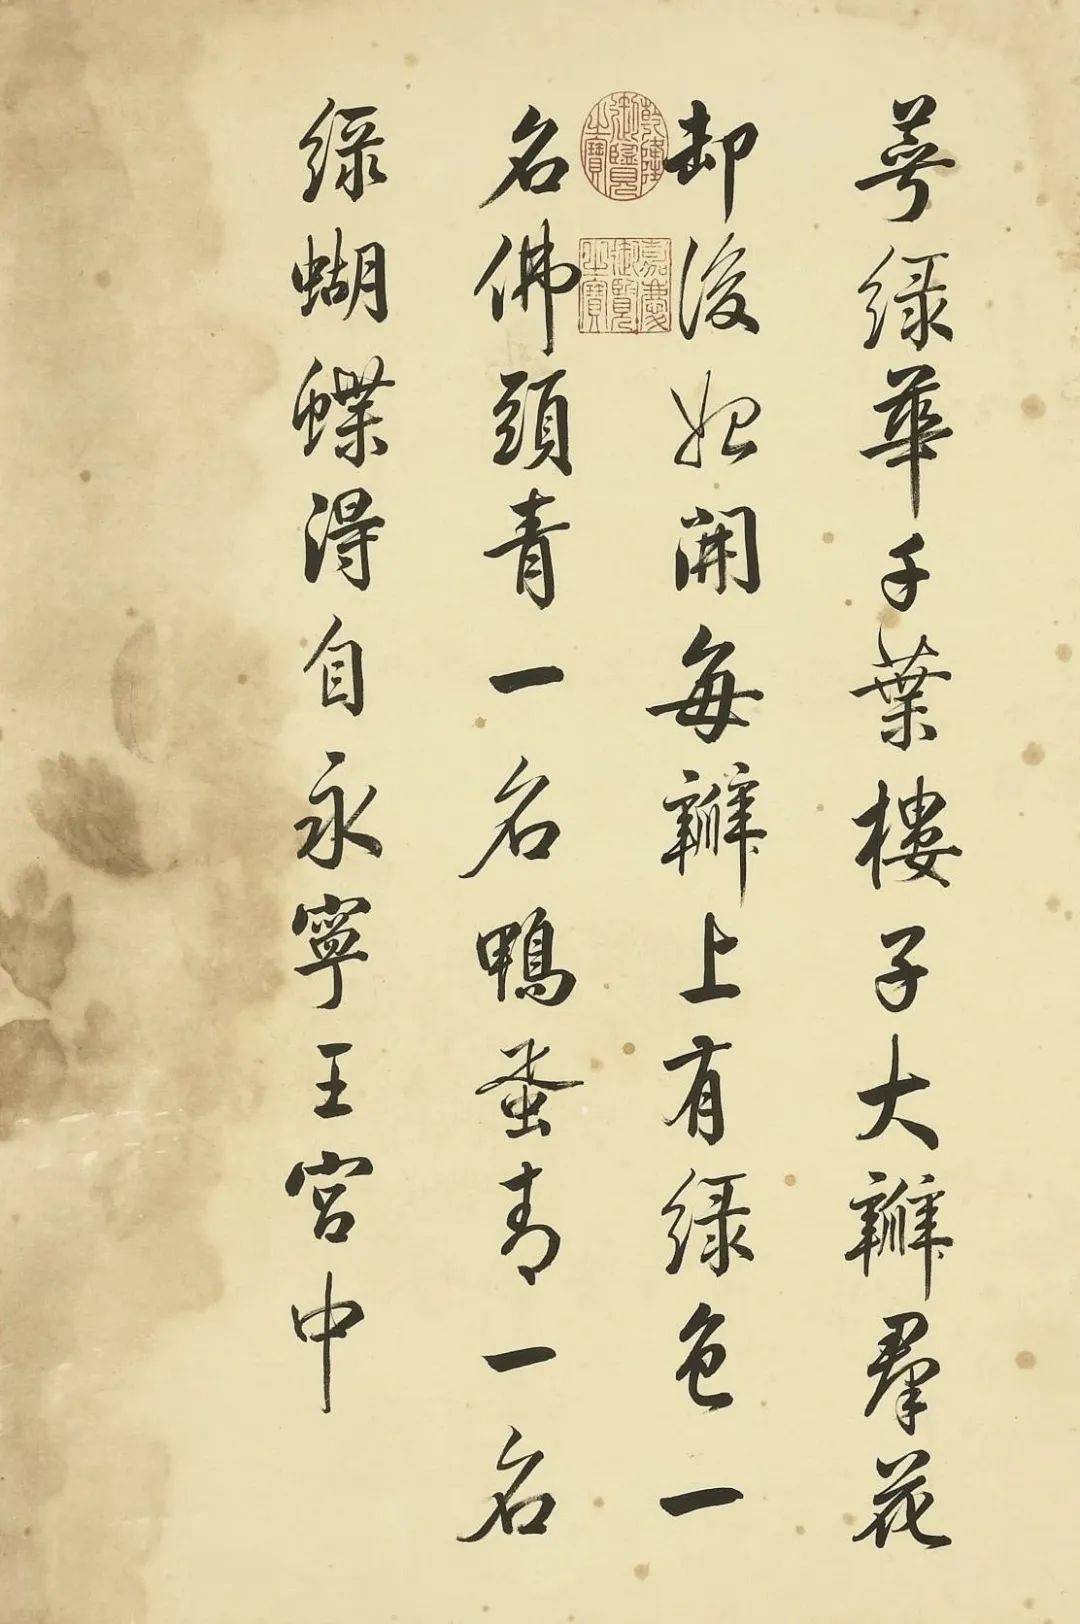 萼綠華千葉樓子大瓣群花
卸後始開每瓣上有綠色一
名佛頭青一名鴨蛋青一名
綠蝴蝶得自永寧王宮中
乾隆御覽之寶
嘉慶御覽之寶